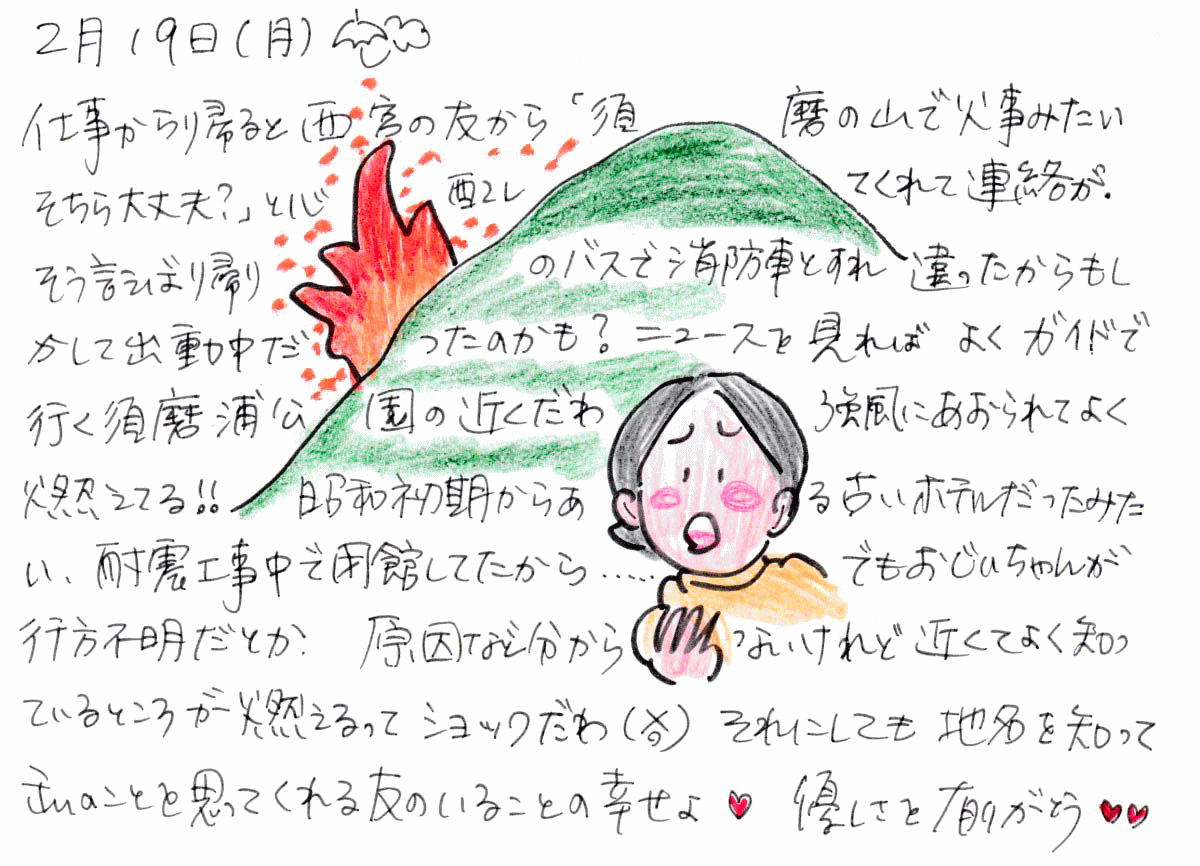 2月19日(月)
仕事から帰ると西宮の友から「須磨の山で火事みたい
そちら大丈夫?」と心配してくれて連絡が.
そう言えばり帰りのバスで消防車とすれ違ったからもし
かして出動中だったのかも?ニュースを見れば よくガイドで
行く須磨浦公園の近くだわ 強風にあおられてよく
燃えてる!! 昭和初期からある古いホテルだったみた
い、耐震工事中で閉館してたから…… でもおじいちゃんが
行方不明だとか、 原因など分からないけれど 近くてよく知っ
ているところが燃えるって ショックだわ( ) それにしても 地名を知って
私のことを思ってくれる友のいることの幸せよ♥ 優しさを有りがとう♥♥